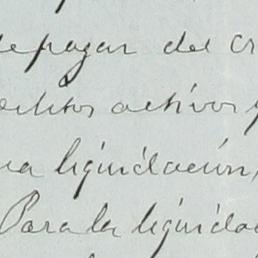 de pagar del cr
editos activos y
na liquidación,
Para la liquidac